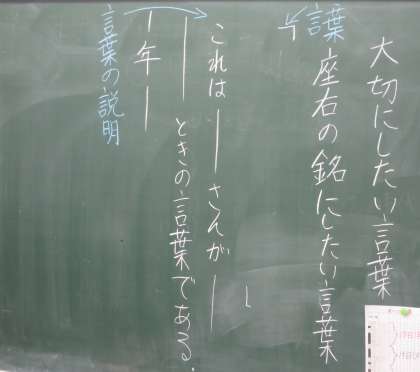 大切にしたい言葉
座右の銘にしたい言葉
言葉
これは――さんが――
――ときの言葉である.
―年―
言葉の説明